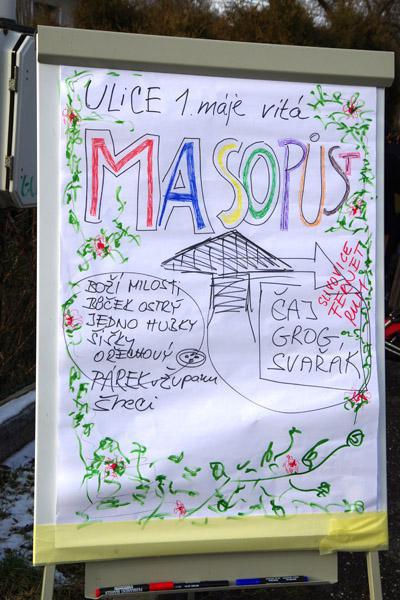 ULICE 1. máje vítá
MASOPUST
BOŽÍ MILOSTI
BŮČEK OSTRÝ
JEDNO HUBKY
ŠIŠKY
OŘECHOVÝ
PÁREK v županu
ČAJ
GROG
SVAŘÁK
SLIVOVICE
FERNET
RUM